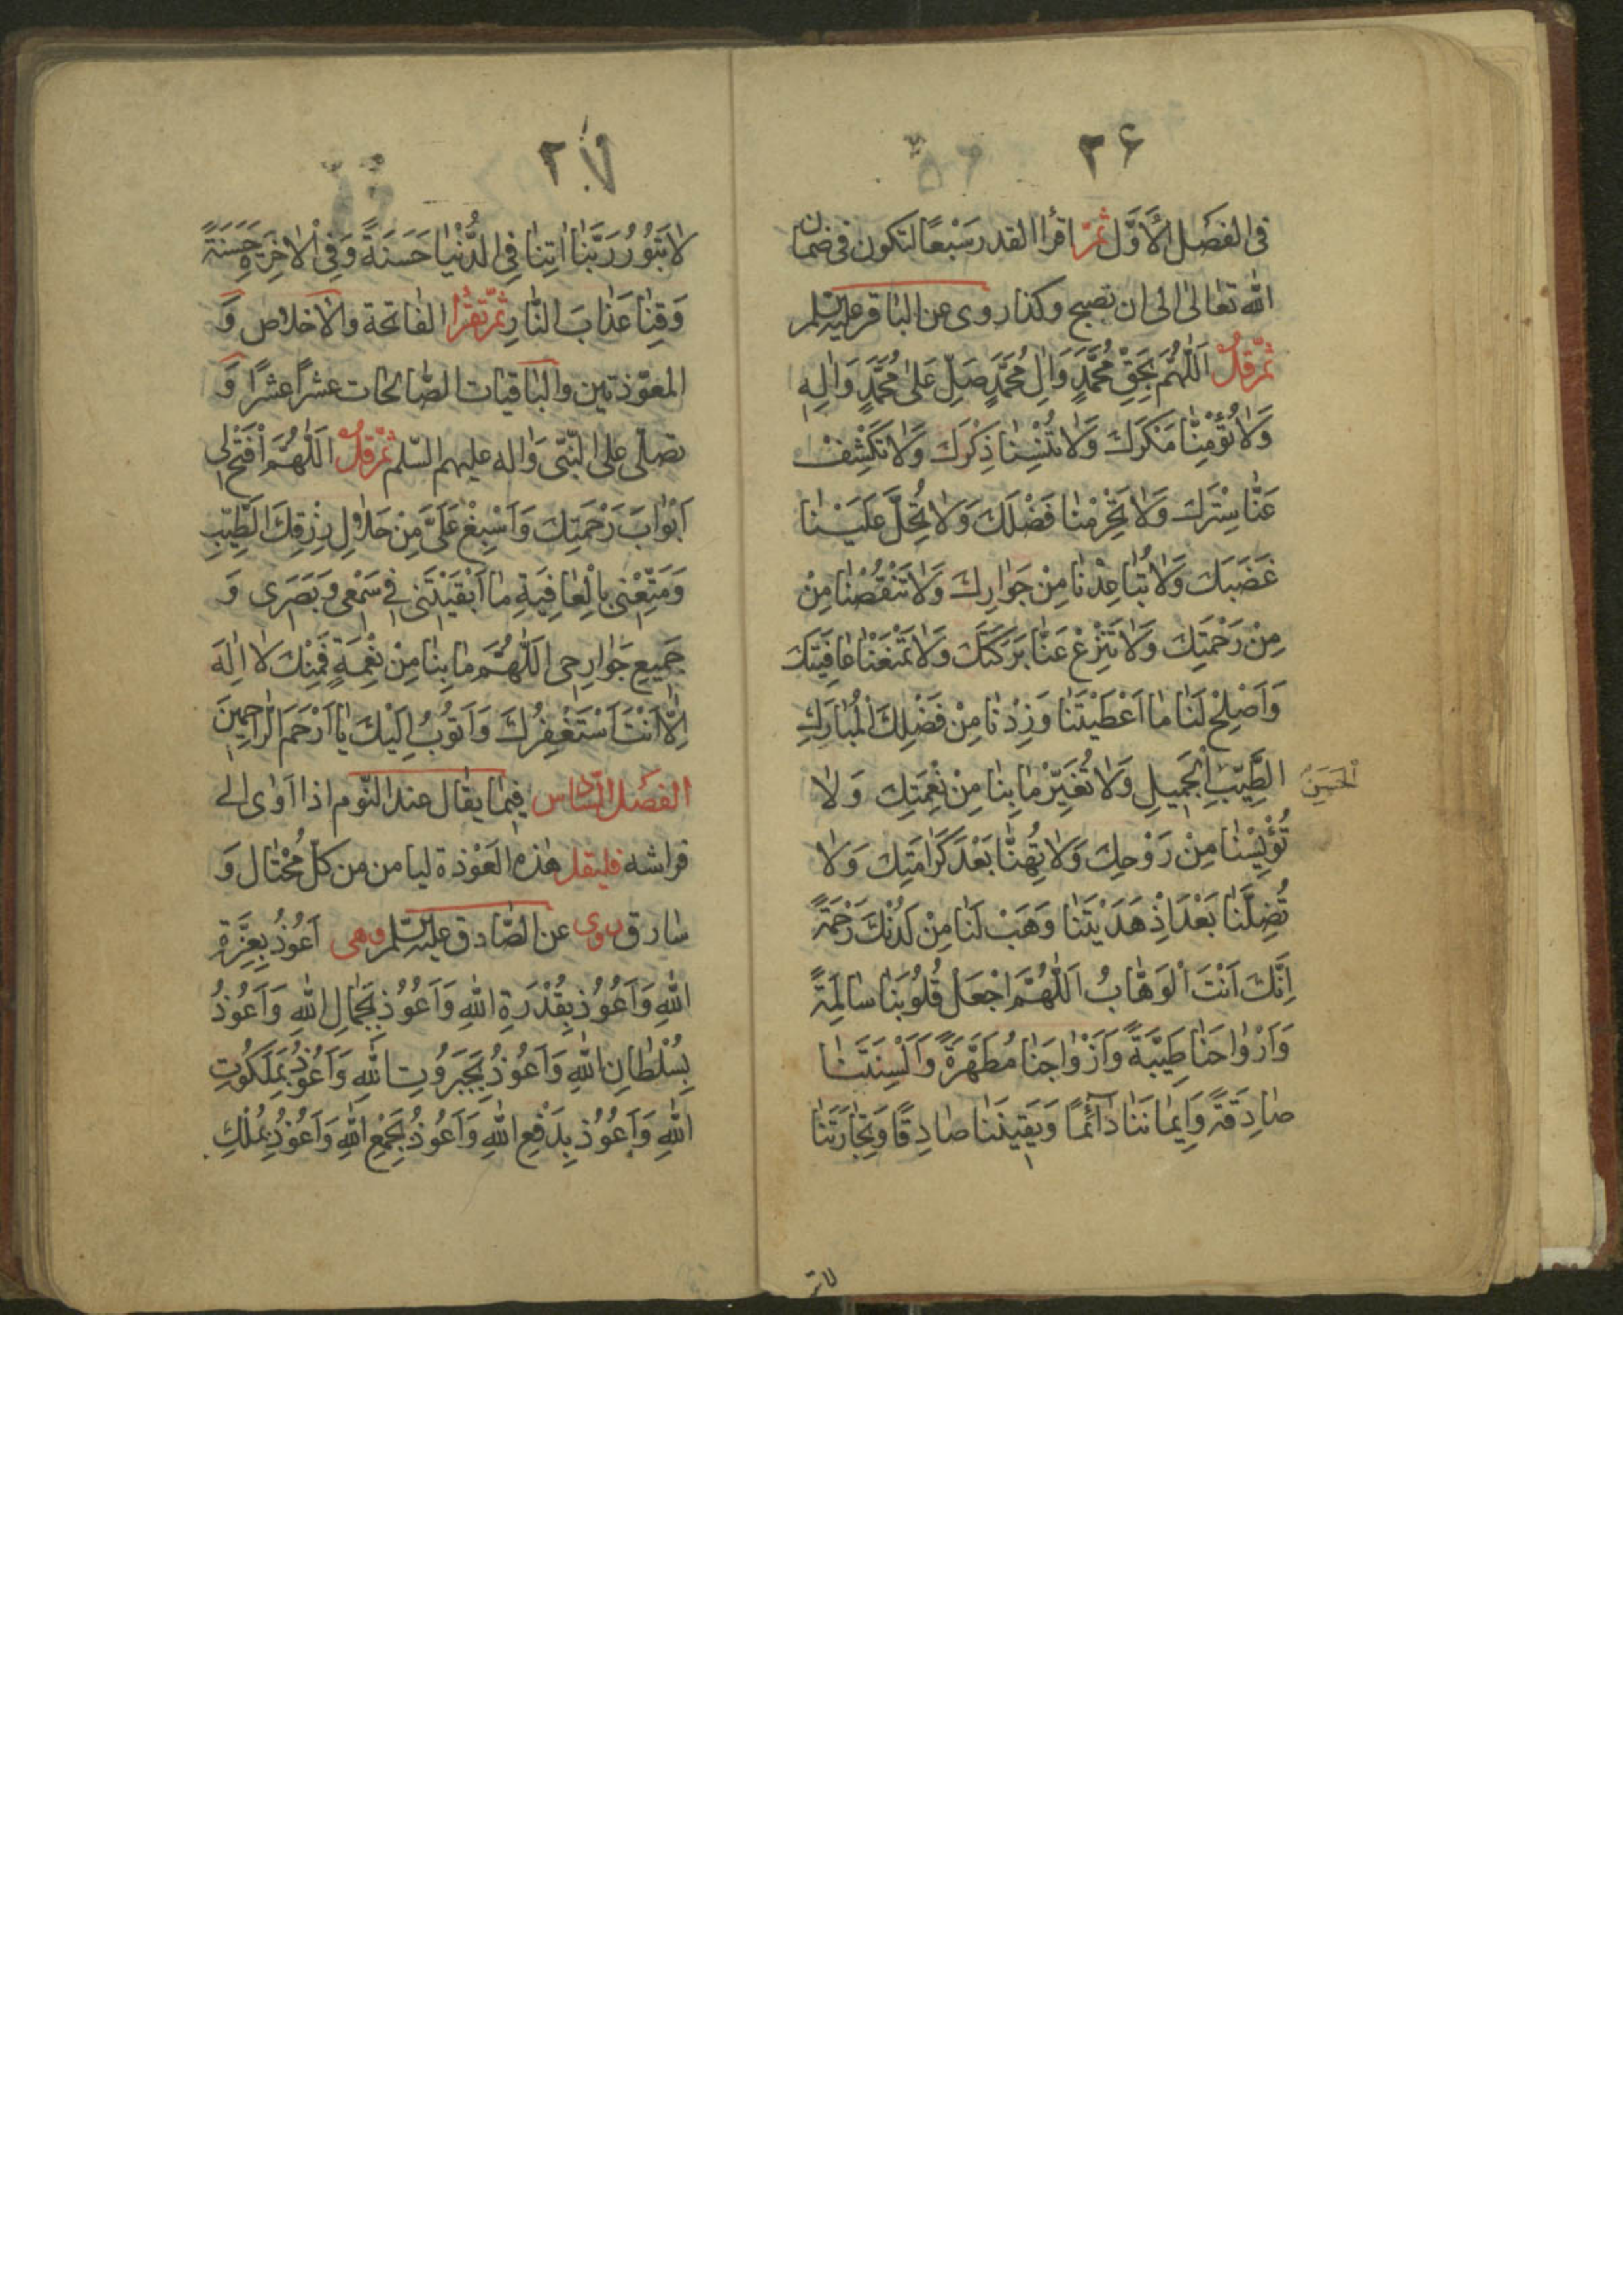 ٢۶
فى الفصل الاَوَّل ثمّ اقرأ القدر سَبْعًا لتكون فى ضمان
الله تعالى الى ان تصبح وكذا روى عن الباقر عليه السّلم
ثمّ قل اَللّٰهُمَّ بِحَقِّ مُحَمَّدٍ وَاٰلِ مُحَمَّدٍ صَلِّ عَلىٰ مُحَمَّدٍ وَاٰلِهِ
وَلاٰ تُؤْمِنّٰا مَكْرَكَ وَلاٰ تُنْسِنٰا ذِكْرَكَ وَلاٰ تَكْشِفْ
عَنّٰا سِتْرَكَ وَلاٰ تَحْرِمْنٰا فَضْلَكَ وَلاٰ تُحِلَّ عَلَيْنٰا
غَضَبَكَ وَلاٰ تُبٰاعِدْنٰا مِنْ جَوٰارِكَ وَلاٰ تَنْقُصْنٰا مِنْ
مِنْ رَحْمَتِكَ وَلاٰ تَنْزِعْ عَنّٰا بَرَكَتَكَ وَلاٰ تَمْنَعْنٰا عٰافِيَتَكَ
وَاَصْلِحْ لَنٰا مٰا اَعْطَيْتَنٰا وَزِدْنٰا مِنْ فَضْلِكَ الْمُبٰارَكِ
الطَّيِّبِ الْجَمِيلِ وَلاٰ تُغَيِّرْ مٰا بِنٰا مِنْ نِعْمَتِكَ وَلاٰ
الْحَسَنِ
تُؤْيِسْنٰا مِنْ رَوْحِكَ وَلاٰ تُهِنّٰا بَعْدَ كَرٰامَتِكَ وَلاٰ
تُضِلَّنٰا بَعْدَ اِذْ هَدَيْتَنٰا وَهَبْ لَنٰا مِنْ لَدُنْكَ رَحْمَةً
اِنَّكَ اَنْتَ الْوَهّٰابُ اَللّٰهُمَّ اجْعَلْ قُلُوبَنٰا سٰالِمَةً
وَاَرْوٰاحَنٰا طَيِّبَةً وَاَزْوٰاجَنٰا مُطَهَّرَةً وَاَلْسِنَتَنٰا
صٰادِقَةً وَاِيمٰانَنٰا دٰآئِمًا وَيَقِينَنٰا صٰادِقًا وَتِجٰارَتَنٰا
لاتـ
٢٧
لاٰ تَبُورُ رَبَّنٰا اٰتِنٰا فِى الدُّنْيٰا حَسَنَةً وَفِى الْاٰخِرَةِ حَسَنَةً
وَقِنٰا عَذٰابَ النّٰارِ ثمّ تقرأ الفاتحة والاخلاص وَ
المعوّذتين والباقيات الصّالحات عشرًا عشرًا وَ
تصلّى على النّبىّ وَاله عليهم السّلم ثمّ قل اَللّٰهُمَّ افْتَحْ لِى
اَبْوٰابَ رَحْمَتِكَ وَاَسْبِغْ عَلَىَّ مِنْ حَلاٰلِ رِزْقِكَ الطَّيِّبِ
وَمَتِّعْنِى بِالْعٰافِيَةِ مٰا اَبْقَيْتَنِى فِى سَمْعِى وَبَصَرِى وَ
جَمِيعِ جَوٰارِحِى اَللّٰهُمَّ مٰا بِنٰا مِنْ نِعْمَةٍ فَمِنْكَ لاٰ اِلٰهَ
اِلّٰا اَنْتَ اَسْتَغْفِرُكَ وَاَتُوبُ اِلَيْكَ يٰا اَرْحَمَ الرّٰاحِمِينَ
الفصل السّادس فيما يقال عند النّوم اذا اَوٰى الى
فراشه فليقل هٰذه العَوْذة ليامن من كلّ مُحْتٰال وَ
سٰارق روى عن الصّادق عليه السّلم وهى اَعُوذُ بِعِزَّةِ
اللهِ وَاَعُوذُ بِقُدْرَةِ اللهِ وَاَعُوذُ بِجَمٰالِ اللهِ وَاَعُوذُ
بِسُلْطٰانِ اللهِ وَاَعُوذُ بِجَبَرُوتِ اللهِ وَاَعُوذُ بِمَلَكُوتِ
اللهِ وَاَعُوذُ بِدَفْعِ اللهِ وَاَعُوذُ بِجَمْعِ اللهِ وَاَعُوذُ بِمُلْكِ